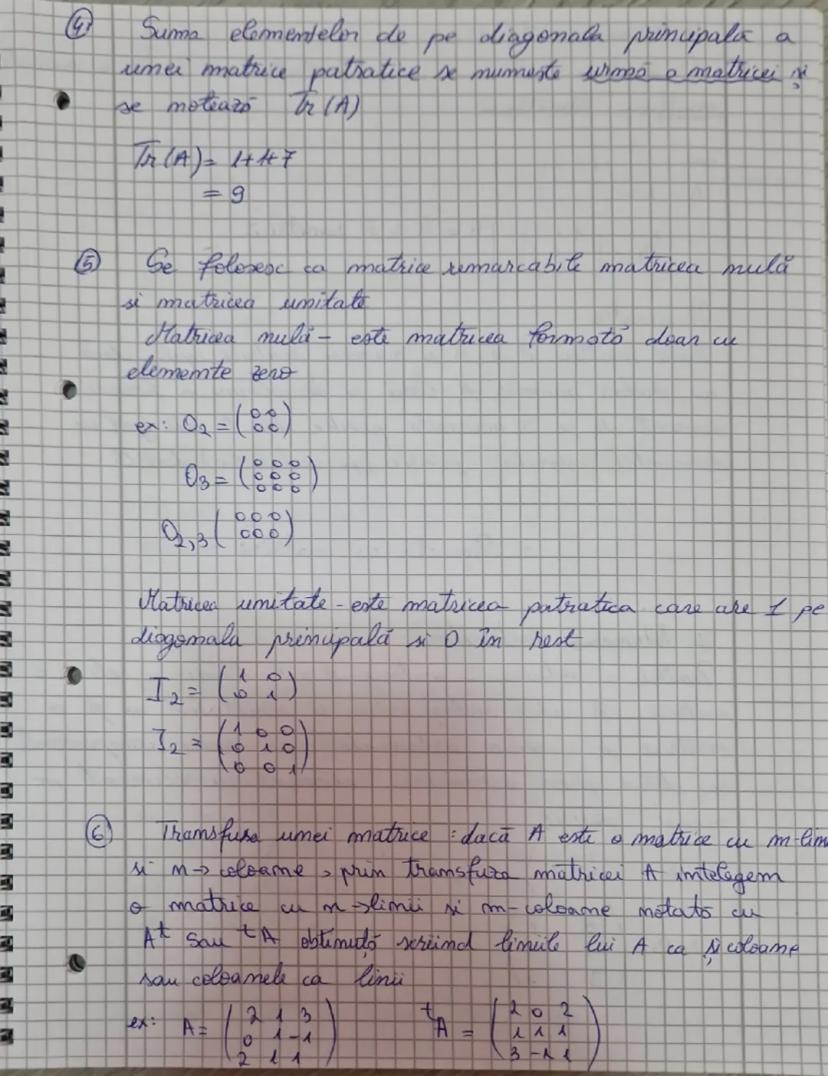 ④ Suma elementelor de pe diagonala principală a
unei matrice patratice se numeste urma a matricei și
se notează Tr(A)
Tr(A) = 1+1+7
= 9
⑤ Se folosesc ca matrice remarcabile matricea nulă
si matricea unitate
Matricea nulă - este matricea formată doar cu
elemente zero
ex: O₂ = (0 0
0 0)
O₃ = (0 0 0
0 0 0
0 0 0)
O₂,₃ (0 0 0
0 0 0)
Matricea unitate - este matricea patratica care are 1 pe
diagonala principală si 0 în rest
I₂ = (1 0
0 1)
I₂ = (1 0 0
0 1 0
0 0 1)
⑥ Transfusa unei matrice : dacă A este o matrice cu m-lin
si n→ coloane, prin transfuza matricei A intelegem
o matrice cu n→linii si m-coloane notată cu
Aᵗ sau ᵗA obtinută scriind liniile lui A ca și coloane
sau coloanele ca linii
ex: A = (2 1 3
0 1 -1
2 1 1)
ᵗA = (2 0 2
1 1 1
3 -1 1)